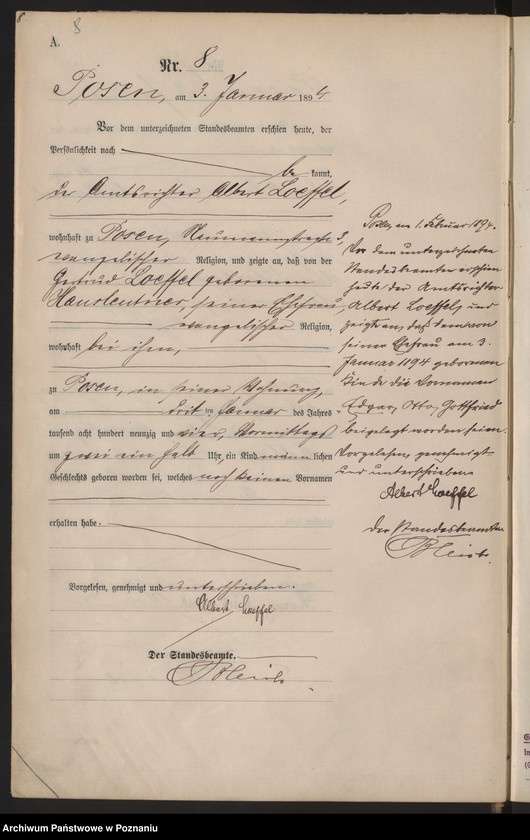 8
A.
8
Nr. 8.
Posen, am 3. Januar 1894
Vor dem unterzeichneten Standesbeamten erschien heute, der
Persönlichkeit nach
be kannt,
der Amtsrichter Albert Loeffel,
wohnhaft zu Posen, Naumannstraße
evangelischer Religion, und zeigte an, daß von der
Gertrud Loeffel geborenen
Hausleutner, seiner Ehefrau,
evangelischer Religion,
wohnhaft bei ihm,
zu Posen, in seiner Wohnung,
am dritten Januar des Jahres
tausend acht hundert neunzig und vier, Vormittags
um zwei ein halb Uhr, ein Kind männlichen
Geschlechts geboren worden sei, welches noch keinen Vornamen
erhalten habe.
Vorgelesen, genehmigt und unterschrieben.
Albert Loeffel
Der Standesbeamte.
Posen, am 1. Februar 1894.
Vor dem unterzeichneten
Standesbeamten erschien
heute der Amtsrichter
Albert Loeffel, und
zeigte an, daß dem von
seiner Ehefrau am 3.
Januar 1894 geborenen
Kinde die Vornamen
Edgar, Otto, Gottfried
beigelegt worden seien.
Vorgelesen, genehmigt
und unterschrieben
Albert Loeffel
Der Standesbeamte
Archiwum Państwowe w Poznaniu